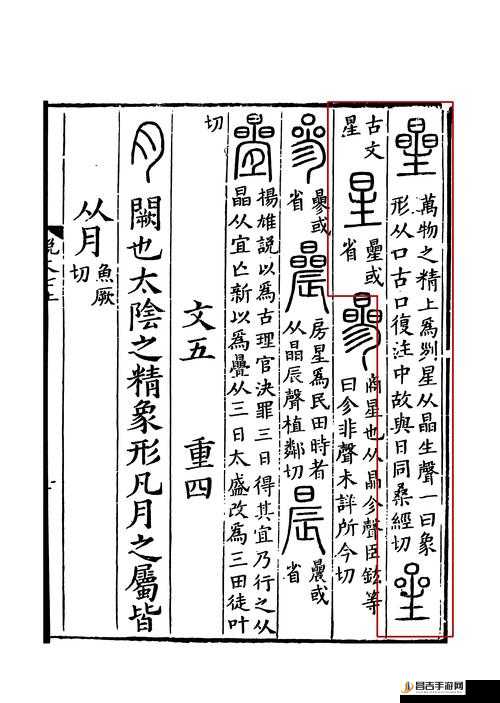 曐
萬物之精上爲列星从晶生聲一曰象
形从口古口復注中故與日同桑經切
古文
星
星
曐或
省
曑
商星也从晶㐱聲臣鉉等
曰㐱非聲未詳所今切
曑或
省
曟
房星爲民田時者
从晶辰聲植鄰切
晨
曟或
省
疊
楊雄說以爲古理官決罪三日得其宜乃行之从
晶从宜亡新以爲疊从三日太盛改爲三田徒叶
切
文五 重四
月
闕也太陰之精象形凡月之屬皆
从月魚厥切
昌吉手游网